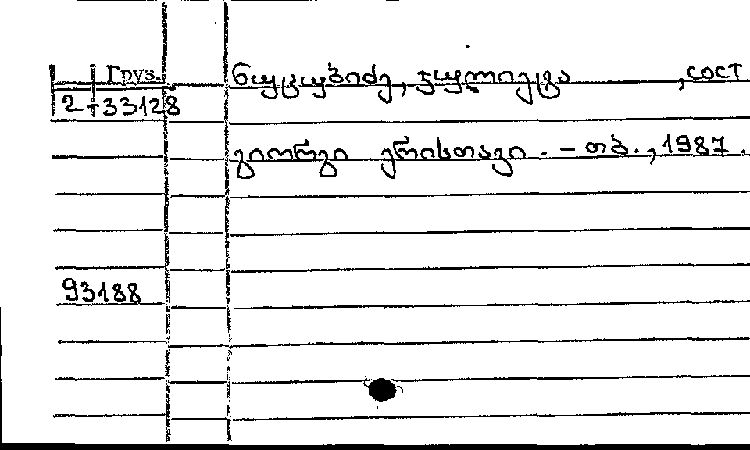 Груз.
ნუცუბიძე, ჯულიეტა ,сост
2-33128
გიორგი ერისთავი. – თბ., 1987.
93188